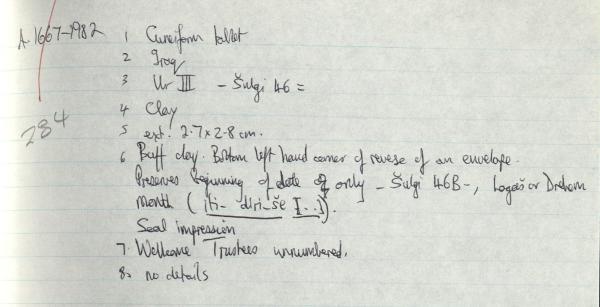 A. 1667-1982 1 Cuneiform tablet
2 Iraq
3 Ur III - Šulgi 46 =
284
4 Clay
5 ext. 2.7 x 2.8 cm.
6 Buff clay. Bottom left hand corner of reverse of an envelope.
Preserves beginning of date only - Šulgi 46B -, Lagaš or Drehem
month (iti- diri-še [..]).
Seal impression
7. Wellcome Trustees unnumbered.
8. no details